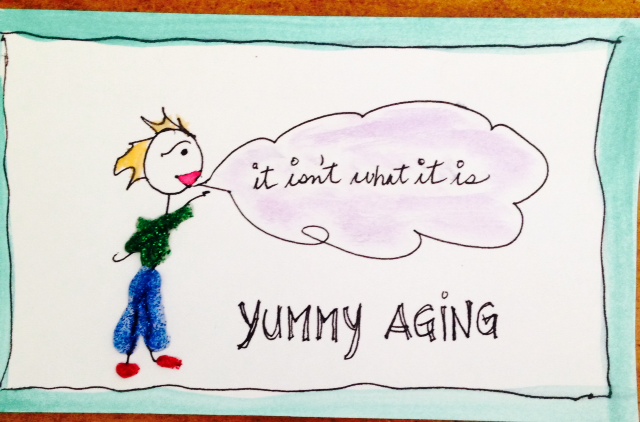 it isn't what it is
YUMMY AGING